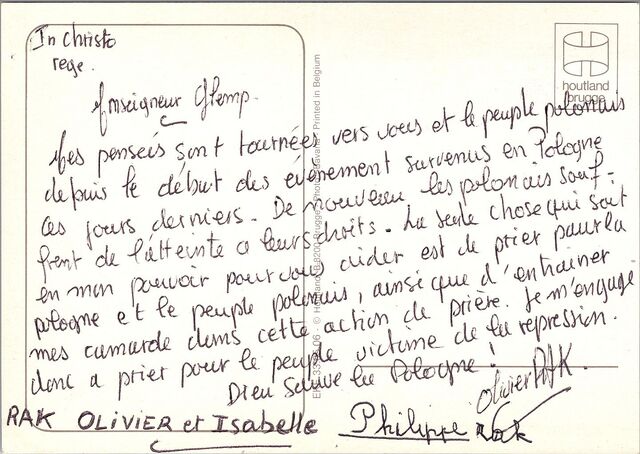 In Christo
rege.
Monseigneur Glemp.
Mes penseés sont tournées vers vous et le peuple polonais
depuis le début des événement survenus en Pologne
ces jours derniers. De nouveau les polonais souf-
frent de l'atteinte a leurs droits. La seule chose qui soit
en mon pouvoir pour vous aider est de prier pour la
pologne et le peuple polonais, ainsi que d'entrainer
mes camarde dans cette action de prière. Je m'engage
donc a prier pour le peuple victime de la repression.
Dieu Sauve la Pologne !
Olivier RAK.
RAK OLIVIER et Isabelle Philippe Rak
houtland
brugge
Printed in Belgium